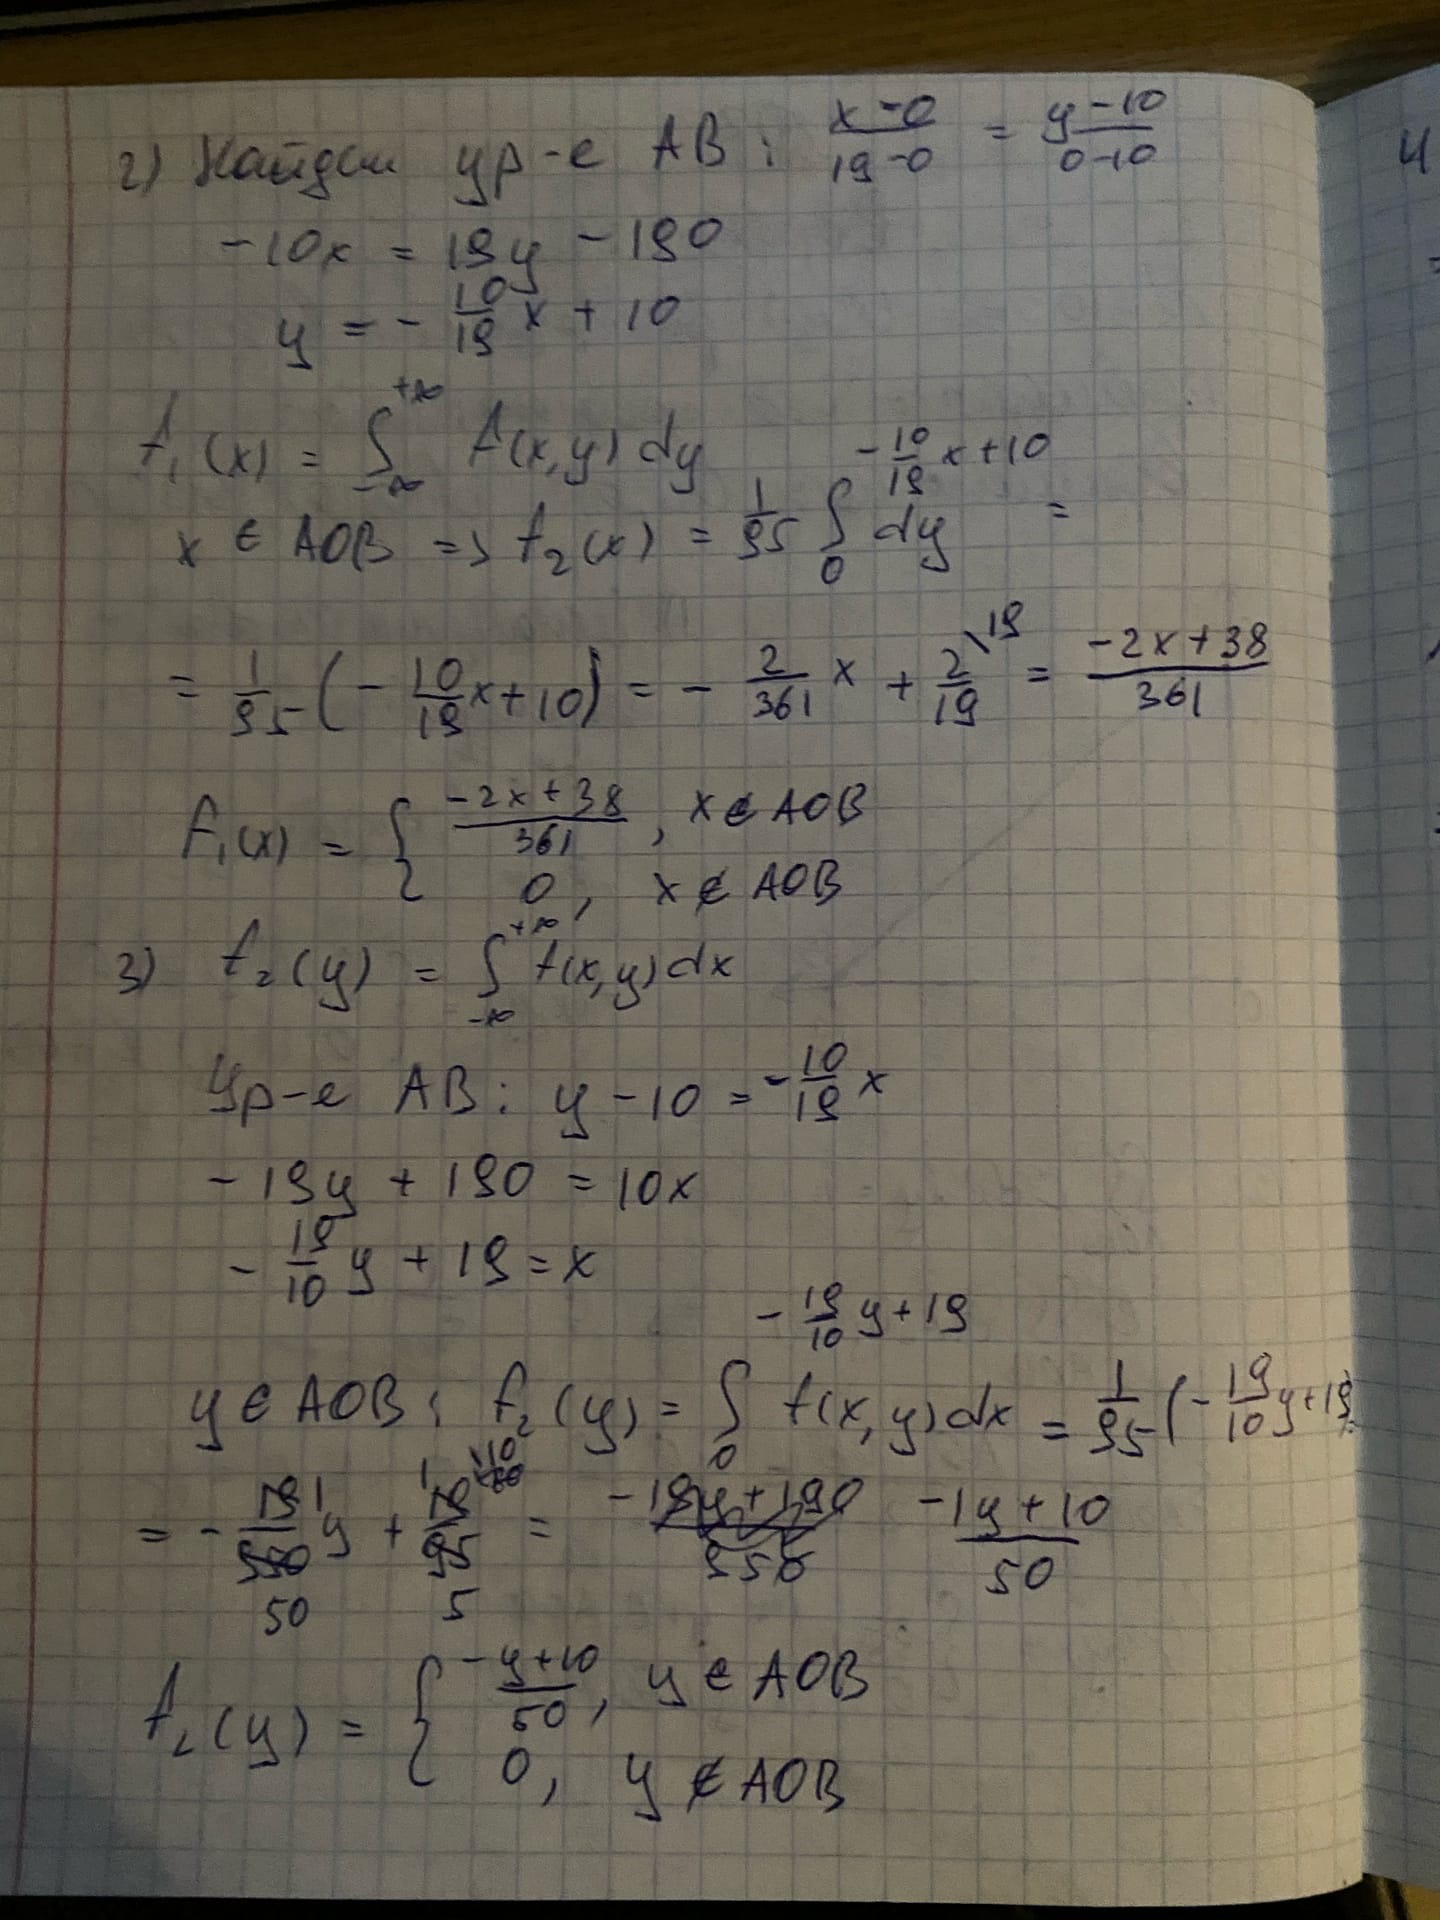 2) Найдем ур-е AB: (x-0)/(19-0) = (y-10)/(0-10)
-10x = 19y - 190
y = -10/19 x + 10
f₁(x) = ∫_{-∞}^{+∞} f(x,y)dy
x ∈ AOB => f₂(x) = 1/95 ∫_0^{-10/19 x+10} dy =
= 1/95 (-10/19 x+10) = -2/361 x + 2/19 \19 = (-2x+38)/361
f₁(x) = { (-2x+38)/361, x ∈ AOB
0, x ∉ AOB
3) f₂(y) = ∫_{-∞}^{+∞} f(x,y)dx
Ур-е AB: y-10 = -10/19 x
-19y + 190 = 10x
-19/10 y + 19 = x
y ∈ AOB: f₂(y) = ∫_0^{-19/10 y+19} f(x,y)dx = 1/95 (-19/10 y+19)
= -1/50 y + 1/5 \10 = (-1y+10)/50
f₂(y) = { (-y+10)/50, y ∈ AOB
0, y ∉ AOB